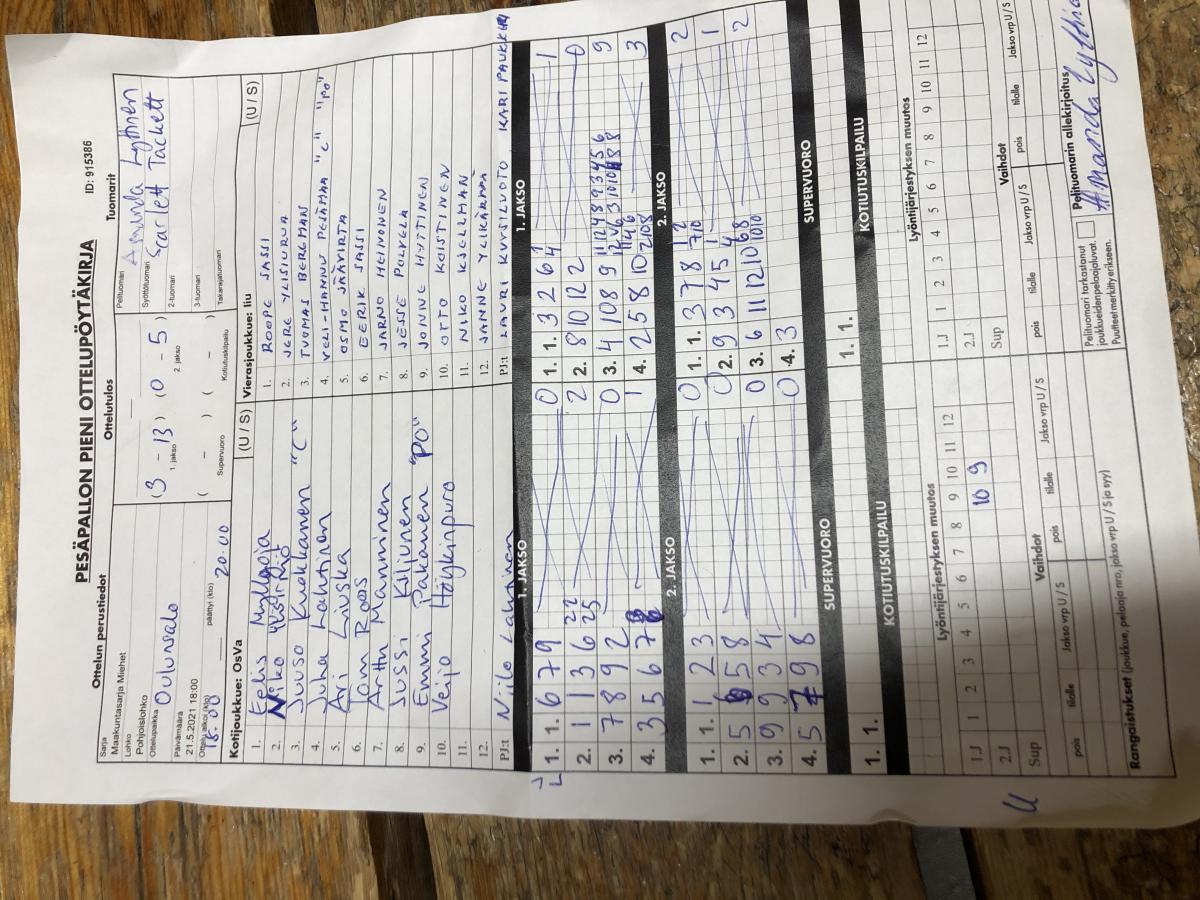 PESÄPALLON PIENI OTTELUPÖYTÄKIRJA ID: 915386
Ottelun perustiedot
Ottelutulos
Tuomarit
Sarja
Maakuntasarja Miehet
Lohko
Pohjoislohko
Ottelupaikka
Oulunsalo
Päivämäärä
21.5.2021 18:00
Ottelu alkoi (klo) päättyi (klo)
18:00 20:00
(3 - 13) (0 - 5)
1. jakso 2. jakso
( - ) ( - )
Supervuoro Kotiutuskilpailu
Pelituomari
Amanda Lyttinen
Syöttötuomari
Scarlett Tackett
2-tuomari
3-tuomari
Takarajatuomari
Kotijoukkue: OsVa (U / S)
1. Eelis Myllyoja
2. Niko
3. Juuso Kuukkanen "C"
4. Juha Lahtinen
5. Ari Liuska
6. Tomi Roos
7. Arttu Manninen
8. Jussi Kiljunen
9. Emmi Pakanen "PO"
10. Veijo Höykinpuro
11.
12.
PJ:t Niilo Lahtinen
Vierasjoukkue: Iiu (U / S)
1. ROOPE SASSI
2. JERE YLISIURUA
3. TUOMAS BERGMAN
4. VELI-HANNUU PELÄMAA "C" "PO"
5. OSMO JÄÄVIRTA
6. EERIK SASSI
7. JARNO HEINONEN
8. JESSE POLVELA
9. JONNE HYITINEN
10. OTTO KOISTINEN
11. NIKO KJELLMAN
12. JANNE YLIKÄRMÄ
PJ:t LAURI KUUSILUOTO KARI PAUKKERI
1. JAKSO
1. 1. 6 7 9 0
2. 1 1 3 6 2
3. 7 8 9 2 0
4. 3 5 6 7 1
1. JAKSO
1. 1. 3 2 6 1
2. 8 10 12 2 0
3. 4 10 8 9 9
4. 2 5 8 10 3
2. JAKSO
1. 1. 1 2 3 0
2. 5 5 8 0
3. 9 9 3 4 0
4. 5 9 8 0
2. JAKSO
1. 1. 3 7 8 2
2. 9 3 4 5 1
3. 6 11 12 10 2
4. 3
SUPERVUORO
1. 1.
SUPERVUORO
1. 1.
KOTIUTUSKILPAILU
KOTIUTUSKILPAILU
Lyöntijärjestyksen muutos
1 2 3 4 5 6 7 8 9 10 11 12
1.J 10 9
2.J
Sup
Vaihdot
pois tilalle Jakso vrp U / S pois tilalle Jakso vrp U / S
Lyöntijärjestyksen muutos
1 2 3 4 5 6 7 8 9 10 11 12
1.J
2.J
Sup
Vaihdot
pois tilalle Jakso vrp U / S pois tilalle Jakso vrp U / S
Rangaistukset (joukkue, pelaaja nro, jakso vrp U / S ja syy)
Pelituomari tarkastanut
joukkueiden pelaajaluvat.
Puutteet merkitty erikseen.
Pelituomarin allekirjoitus
Amanda Lyttinen